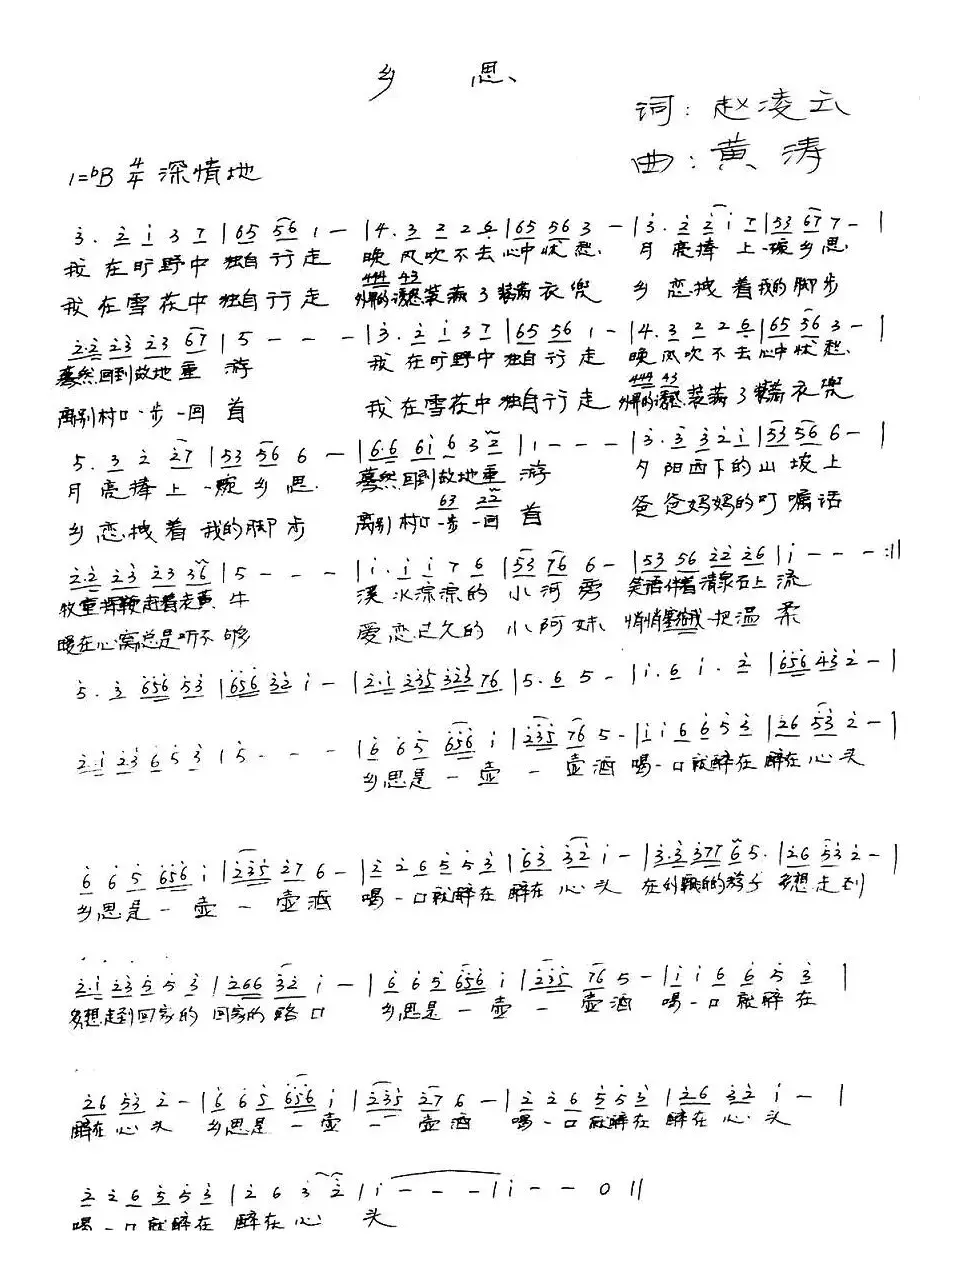 乡 思
词：赵凌云
曲：黄涛
1=♭B 4/4 深情地
3. 2 1 3 7 | 65 56 1 - | 4. 3 2 2 6 | 65 56 3 - | 3. 2 2 1 7 | 53 67 7 - |
我在旷野中独自行走 晚风吹不去心中忧愁. 月亮捧上一碗乡思.
我在雪花中独自行走 装满了 衣兜 乡恋拽着我的脚步
2.2 23 23 67 | 5 - - - | 3. 2 1 3 7 | 65 56 1 - | 4. 3 2 2 6 | 65 56 3 - |
蓦然回到故地重游 我在旷野中独自行走 晚风吹不去心中忧愁.
离别村口一步一回首 我在雪花中独自行走 装满了 衣兜
5. 3 2 27 | 53 56 6 - | 6.6 61 6 3 2 | 1 - - - | 3. 3 3 2 1 | 53 56 6 - |
月亮捧上一碗乡思. 蓦然回到故地重游 夕阳西下的山坡上
乡恋拽着我的脚步 离别村口一步一回首 爸爸妈妈的叮嘱话
2.2 23 23 36 | 5 - - - | 1. 1 1 7 6 | 53 76 6 - | 53 56 22 26 | 1 - - - :||
牧童挥鞭赶着老黄牛 溪水淙淙的小河旁 笑语伴着清泉石上流
暖在心窝总是听不够 爱恋已久的小阿妹 悄悄 我一把温柔
5. 3 656 53 | 656 32 1 - | 2.1 235 323 76 | 5. 6 5 - | 1. 6 1. 2 | 656 43 2 - |
2.1 23 6 5 3 | 5 - - - | 6 6 5 656 1 | 235 76 5 - | 1 1 6 6 5 3 | 26 53 2 - |
乡思是一壶一壶酒 喝一口就醉在醉在心头
6 6 5 656 1 | 235 27 6 - | 2 2 6 5 5 3 | 63 32 1 - | 3.3 377 6 5. | 26 53 2 - |
乡思是一壶一壶酒 喝一口就醉在醉在心头 在外飘的游子多想走到
2.1 23 5 5 3 | 266 32 1 - | 6 6 5 656 1 | 235 76 5 - | 1 1 6 6 5 3 |
多想走到回家的回家的路口 乡思是一壶一壶酒 喝一口就醉在
26 53 2 - | 6 6 5 656 1 | 235 27 6 - | 2 2 6 5 5 3 | 26 32 1 - |
醉在心头 乡思是一壶一壶酒 喝一口就醉在醉在心头
2 2 6 5 5 3 | 2 6 3 2 | 1 - - - | 1 - - 0 ||
喝一口就醉在醉在心头